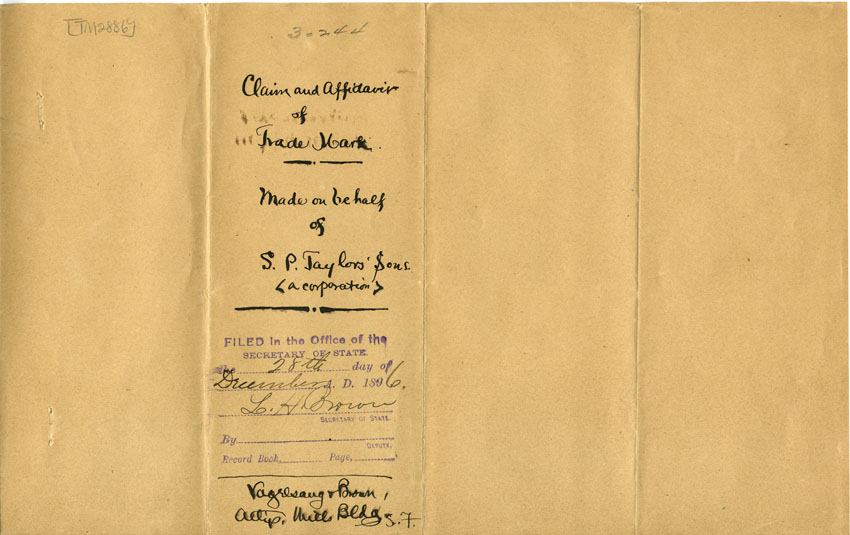 [TM2886]
3-244
Claim and Affidavit
of
Trade Mark.
Made on behalf
of
S. P. Taylors' Sons
<a corporation>
FILED in the Office of the
SECRETARY OF STATE.
the 28th day of
December A. D. 1896.
L. H. Brown
SECRETARY OF STATE.
By
DEPUTY.
Record Book, Page,
& Brown,
Attys. Mills Bldg S.F.